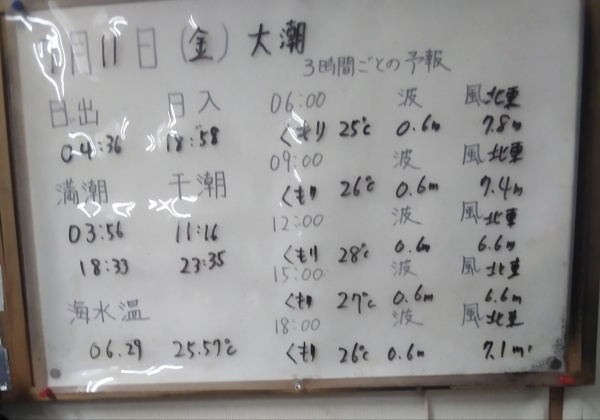 7月11日(金)大潮
3時間ごとの予報
日出 日入
04:36 18:58
満潮 干潮
03:56 11:16
18:33 23:35
海水温
06.29 25.57℃
06:00 波 風北東
くもり 25℃ 0.6m 7.8m
09:00 波 風北東
くもり 26℃ 0.6m 7.4m
12:00 波 風北東
くもり 28℃ 0.6m 6.6m
15:00 波 風北東
くもり 27℃ 0.6m 6.6m
18:00 波 風北東
くもり 26℃ 0.6m 7.1m